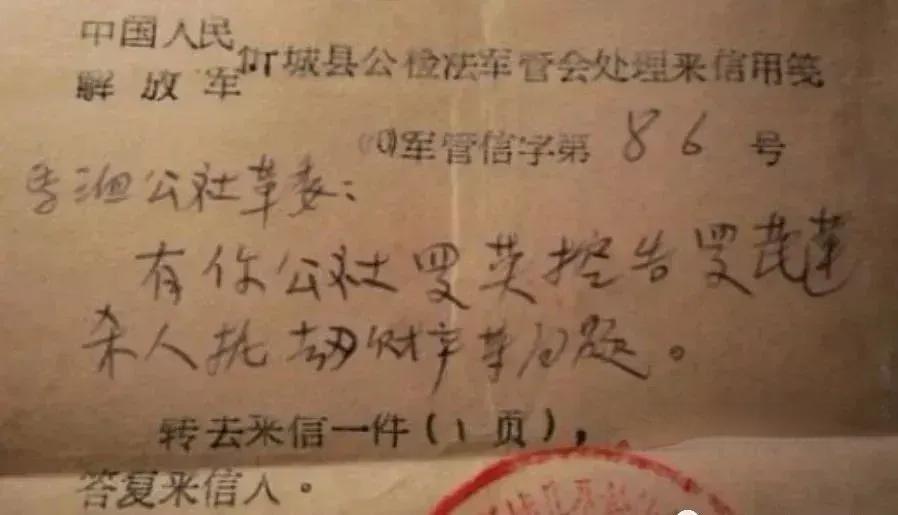 中国人民
解放军 忻城县公检法军管会处理来信用笺
军管信字第 86 号
公社革委：
有你公社罗英控告罗莲
杀人抢劫财产等问题。
转去来信一件（1页），
答复来信人。